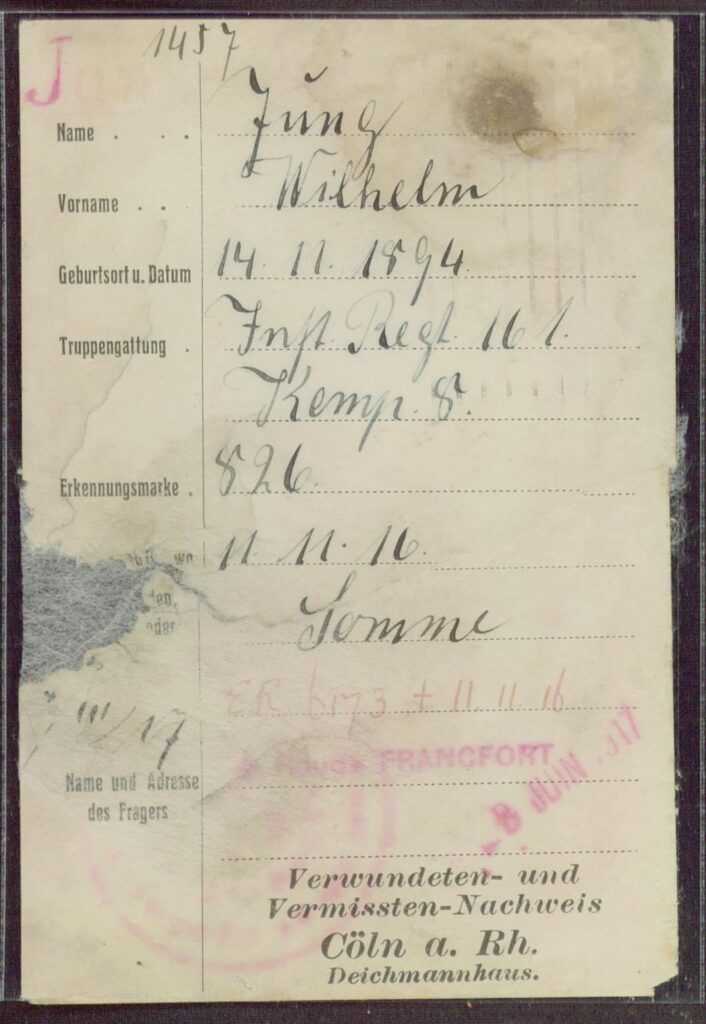 1457
J
Name . . . Jung
Vorname . . Wilhelm
Geburtsort u. Datum 14. 11. 1894.
Truppengattung . Inft. Regt. 161.
Komp. 8.
Erkennungsmarke . 826.
wo 11. 11. 16.
den,
oder Somme
ER 6173 + 11. 11. 16
III/17
FRANCFORT
8 JUIN 1917
Name und Adresse
des Fragers
Verwundeten- und
Vermissten-Nachweis
Cöln a. Rh.
Deichmannhaus.